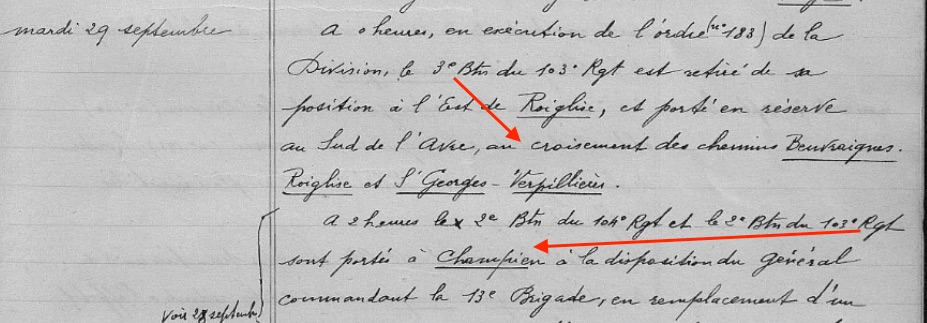 mardi 29 septembre
A 0 heures, en exécution de l'ordre (n° 183) de la
Division, le 3e Btn du 103e Rgt est retiré de sa
position à l'Est de Roiglise, et porté en réserve
au Sud de l'Avre, au croisement des chemins Beuvraignes.
Roiglise et St Georges - Verpillières.
A 2 heures le 2e Btn du 104e Rgt et le 2e Btn du 103e Rgt
sont portés à Champien à la disposition du général
commandant la 13e Brigade, en remplacement d'un
Voir 28 septembre